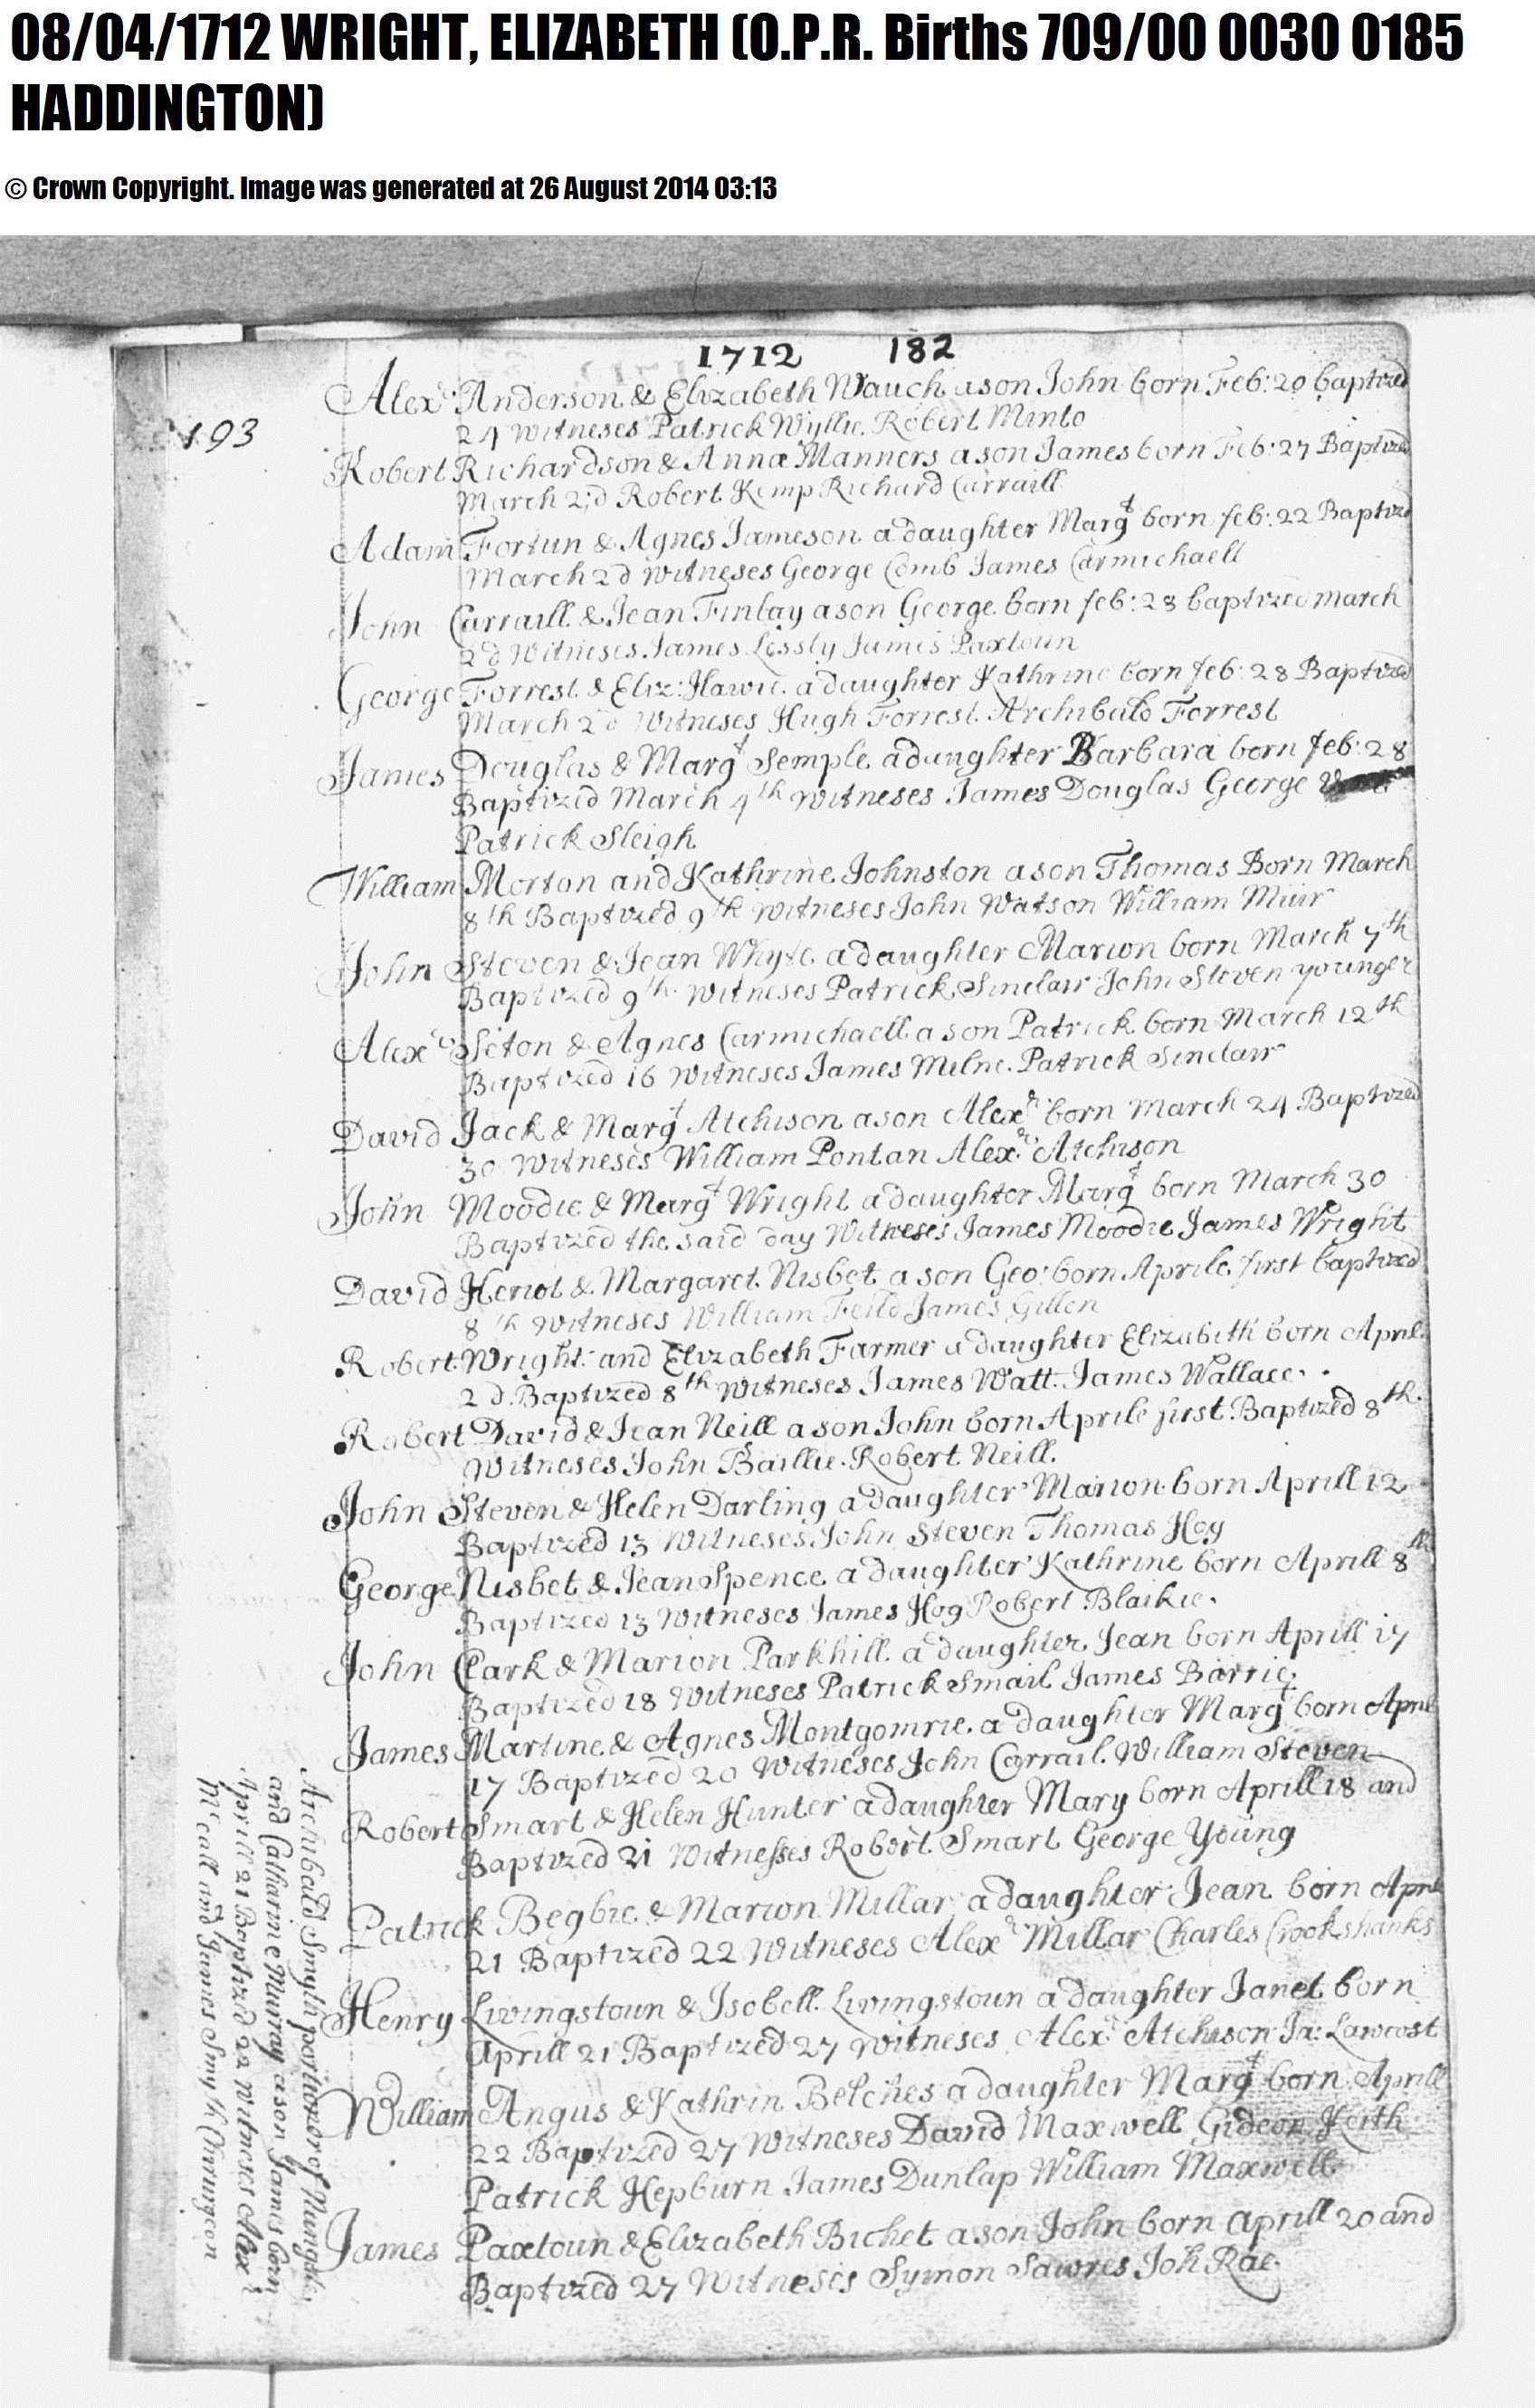 08/04/1712 WRIGHT, ELIZABETH (O.P.R. Births 709/00 0030 0185
HADDINGTON)
© Crown Copyright. Image was generated at 26 August 2014 03:13
1712 182
193
Alexr Anderson & Elizabeth Wauch a son John born Feb: 20 baptized
24 witneses Patrick Wyllie Robert Minto
Robert Richardson & Anna Manners a son James born Feb: 27 Baptized
March 2d Robert Kemp Richard Carraill
Adam Fortun & Agnes Jameson a daughter Margt born feb: 22 Baptized
March 2d witneses George Comb James Carmichaell
John Carraill & Jean Finlay a son George born feb: 28 baptized March
2d Witneses James Lessly James Paxtoun
George Forrest & Eliz: Hawie a daughter Kathrine born feb: 28 Baptized
March 2d witneses Hugh Forrest Archibald Forrest
James Douglas & Margt Semple a daughter Barbara born feb: 28
Baptized March 4th witneses James Douglas George
Patrick Sleigh
William Morton and Kathrine Johnston a son Thomas Born March
8th Baptized 9th witneses John Watson William Muir
John Steven & Jean Whyte a daughter Marion born March 7th
Baptized 9th witneses Patrick Sinclair John Steven younger
Alexr Seton & Agnes Carmichaell a son Patrick born March 12th
Baptized 16 witneses James Milne Patrick Sinclair
David Jack & Margt Atchison a son Alexr born March 24 Baptized
30 witneses William Pontan Alexr Atchison
John Moodie & Margt Wright a daughter Margt born March 30
Baptized the said day Witneses James Moodie James Wright
David Heriot & Margaret Nisbet a son Geo: born Aprile first baptized
8th witneses William Feild James Gillen
Robert Wright and Elizabeth Farmer a daughter Elizabeth born April
2d Baptized 8th witneses James Watt James Wallace
Robert David & Jean Neill a son John born Aprile first Baptized 8th
Witneses John Baillie Robert Neill.
John Steven & Helen Darling a daughter Marion born Aprill 12
Baptized 13 witneses John Steven Thomas Hoy
George Nisbet & Jean Spence a daughter Kathrine born Aprill 8th
Baptized 13 witneses James Hog Robert Blaikie.
John Clark & Marion Parkhill a daughter Jean born Aprill 17
Baptized 18 witneses Patrick Smail James Barrie
James Martine & Agnes Montgomrie a daughter Margt born Aprill
17 Baptized 20 witneses John Carrail William Steven
Robert Smart & Helen Hunter a daughter Mary born Aprill 18 and
Baptized 21 Witnesses Robert Smart George Young
Patrick Begbie & Marion Millar a daughter Jean born Aprill
21 Baptized 22 witneses Alexr Millar Charles Crookshanks
Henry Livingstoun & Isobell Livingstoun a daughter Janet born
Aprill 21 Baptized 27 witneses Alexr Atchison Ja: Lawcost
William Angus & Kathrin Belches a daughter Margt born Aprill
22 Baptized 27 Witneses David Maxwell Gideon Keith
Patrick Hepburn James Dunlap William Maxwell
James Paxtoun & Elizabeth Bichet a son John born Aprill 20 and
Baptized 27 Witneses Symon Sawres Joh Rae.
Archibald Smyth portioner of
and Catharine Murray a son James born
Aprill 21 Baptized 22 Witneses Alexr
McCall and James Smyth Chirurgeon